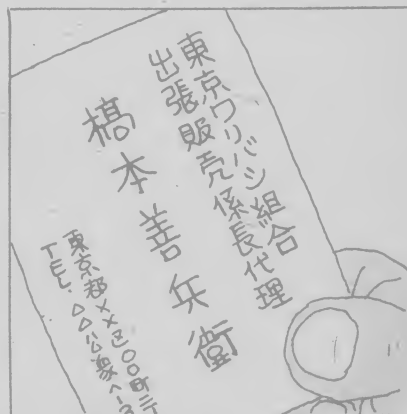 東京ワリバシ組合
出張販売係長代理
橋本善兵衛
東京都××区○○町
TEL.△△